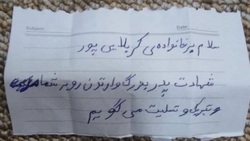 سلام بر خانواده‌ی کربلایی پور
شهادت پدر بزرگوارتون رو به شما
تبریک و تسلیت می گویم